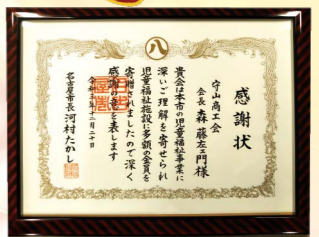 感謝状
守山商工会
会長 森 藤左ェ門様
貴会は本市の児童福祉事業に
深いご理解を寄せられ
児童福祉施設に多額の金員を
寄贈されましたので深く
感謝の意を表します
名古屋市長 河村たかし